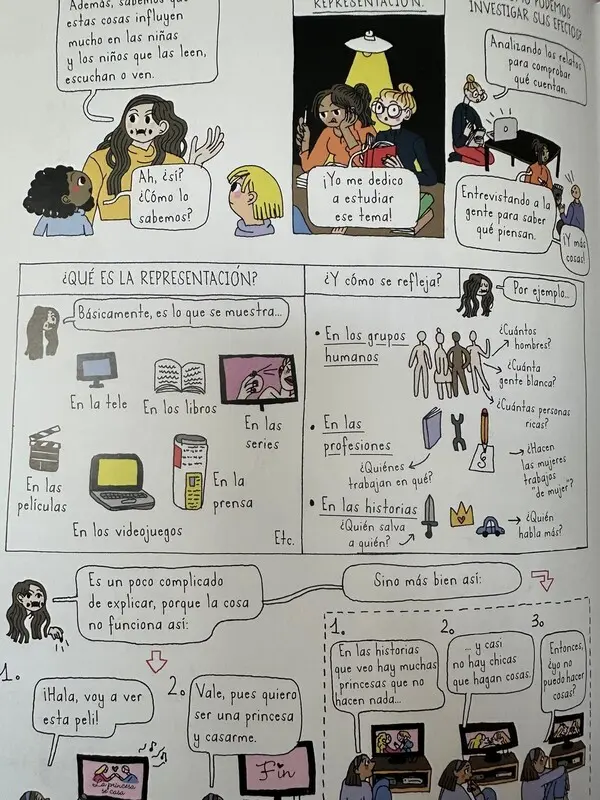 Además, sabemos que
estas cosas influyen
mucho en las niñas
y los niños que las leen,
escuchan o ven.
Ah, ¿sí?
¿Cómo lo
sabemos?
REPRESENTACIÓN.
¡Yo me dedico
a estudiar
ese tema!
PODEMOS
INVESTIGAR SUS EFECTOS?
Analizando los relatos
para comprobar
qué cuentan.
Entrevistando a la
gente para saber
qué piensan.
¡Y más
cosas!
¿QUÉ ES LA REPRESENTACIÓN?
Básicamente, es lo que se muestra...
En la tele
En los libros
En las
series
En las
películas
En los videojuegos
En la
prensa
Etc.
¿Y cómo se refleja?
Por ejemplo...
• En los grupos
humanos
¿Cuántos
hombres?
¿Cuánta
gente blanca?
¿Cuántas personas
ricas?
• En las
profesiones
¿Quiénes
trabajan en qué?
¿Hacen
las mujeres
trabajos
"de mujer"?
• En las historias
¿Quién salva
a quién?
¿Quién
habla más?
Es un poco complicado
de explicar, porque la cosa
no funciona así:
Sino más bien así:
1.
¡Hala, voy a ver
esta peli!
La princesa
se casa
2.
Vale, pues quiero
ser una princesa
y casarme.
Fin
1.
En las historias
que veo hay muchas
princesas que no
hacen nada...
2.
... y casi
no hay chicas
que hagan cosas.
3.
Entonces,
¿yo no
puedo hacer
cosas?